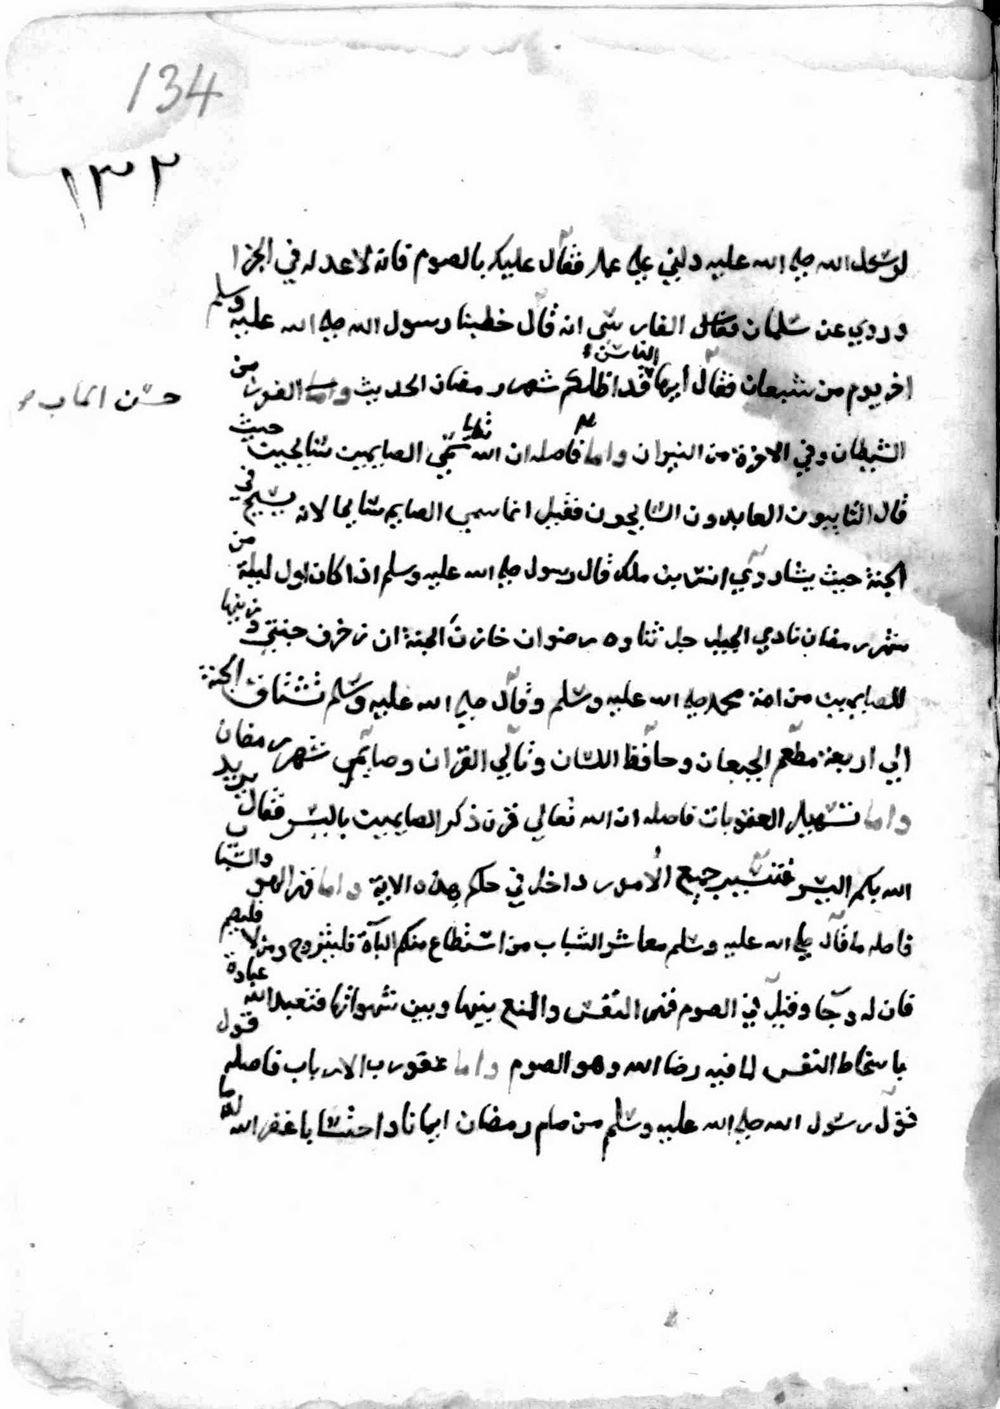 134
١٣٢
لرسول الله صلى الله عليه دلني على عمل فقال عليك بالصوم فانه لا عدل له في الجزا
وروي عن سلمان الفارسي انه قال خطبنا رسول الله صلى الله عليه وسلم
اخر يوم من شعبان فقال ايها الناس قد اظلكم شهر رمضان الحديث واما الفوز من
حسن الماب
الشيطان وفي الاخرة من النيران واما فاصله ان الله تعالى سمى الصايمين سايحين حيث
قال التايبون العابدون السايحون فقيل انما سمي الصايم سايحا لانه يسيح في
الجنة حيث يشا روي انس بن ملك قال رسول صلى الله عليه وسلم اذا كان اول ليلة من
شهر رمضان نادي الجليل جل ثناوه رضوان خازن الجنة ان زخرف جنتي وزينها
للصايمين من امة محمد صلى الله عليه وسلم وقال صلى الله عليه وسلم تشتاق الجنة
الي اربعة مطعم الجيعان وحافظ اللسان وتالي القران وصايمي شهر رمضان
واما تسهيل العقوبات فاصله ان الله تعالي قرن ذكر الصايمين باليسر فقال يريد
الله بكم اليسر فتنسيب جميع الأمور داخل في حكم هذه الاية واما الهوى والشباب
فاصله ما قال صلى الله عليه وسلم معاشر الشباب من استطاع منكم الباة فليتزوج ومن لا فليصم
فان له وجا وقيل في الصوم قهر النفس والمنع بينها وبين شهواتها فتعبد الله عبادة
باسخاط النفس لما فيه رضا الله وهو الصوم واما الارباب فاصله قول
فقول رسول الله صلى الله عليه وسلم من صام رمضان ايمانا واحتسابا غفر الله له ما